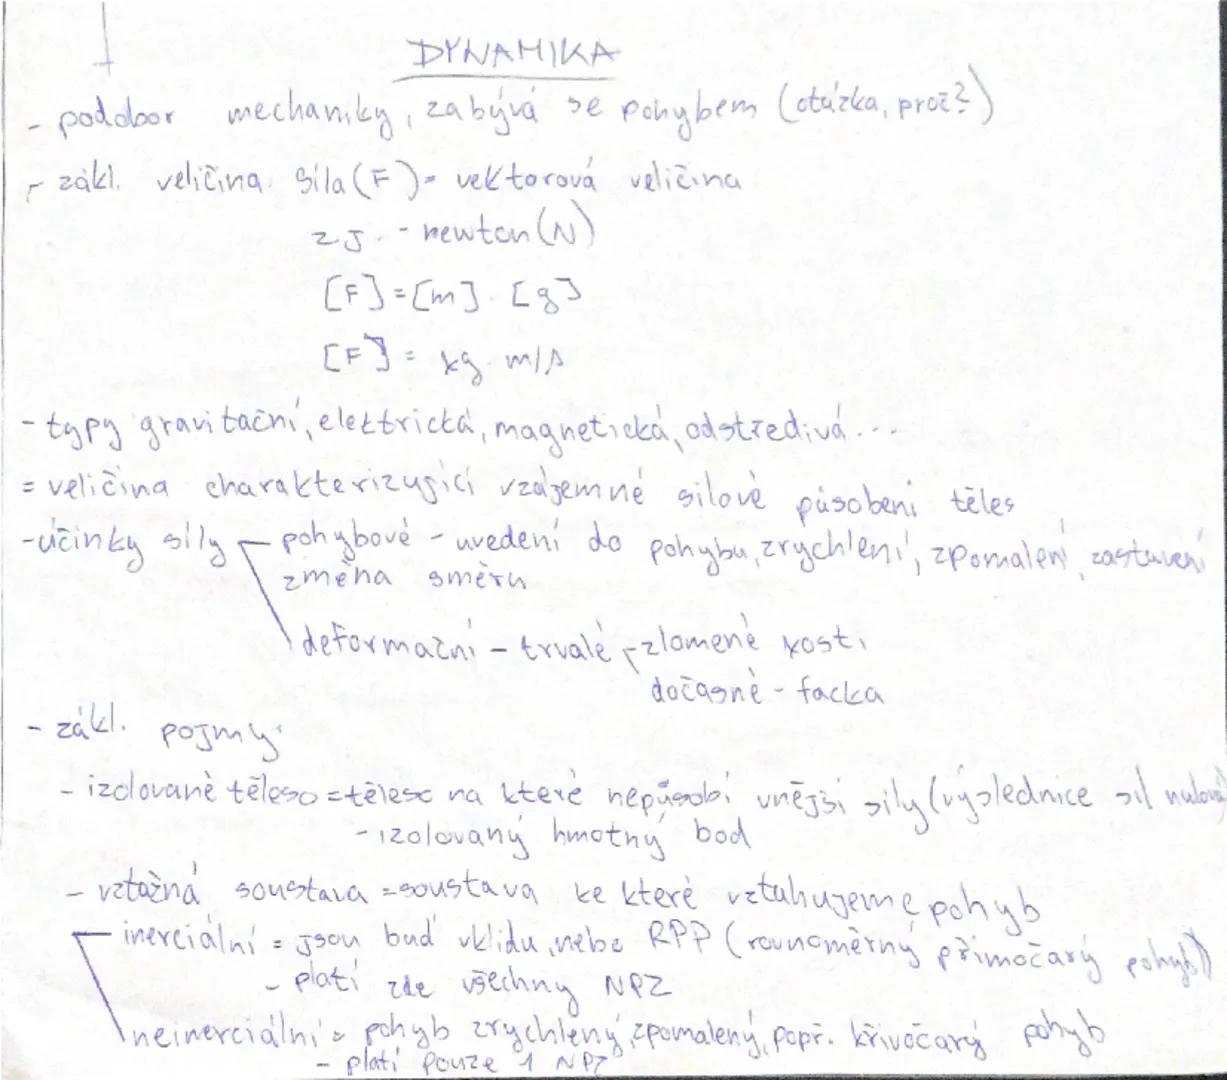 DYNAMIKA
- podobor mechaniky, zabývá se pohybem (otázka, proč?)
- zákl. veličina: síla (F) - vektorová veličina
zj. - newton (N)
[F] = [m] . [g]
[F] = kg . m/s
- typy gravitační, elektrická, magnetická, odstředivá...
= veličina charakterizující vzájemné silové působení těles
- účinky síly - pohybové - uvedení do pohybu, zrychlení, zpomalení, zastavení
změna směru
deformační - trvalé - zlomené kosti
dočasné - facka
- zákl. pojmy:
- izolované těleso = těleso na které nepůsobí vnější síly (výslednice sil nulová)
- izolovaný hmotný bod
- vztažná soustava = soustava ke které vztahujeme pohyb
inerciální = jsou buď v klidu, nebo RPP (rovnoměrný přímočarý pohyb)
- platí zde všechny NPZ
neinerciální = pohyb zrychlený, zpomalený, popř. křivočarý pohyb
- platí pouze 1 NPZ